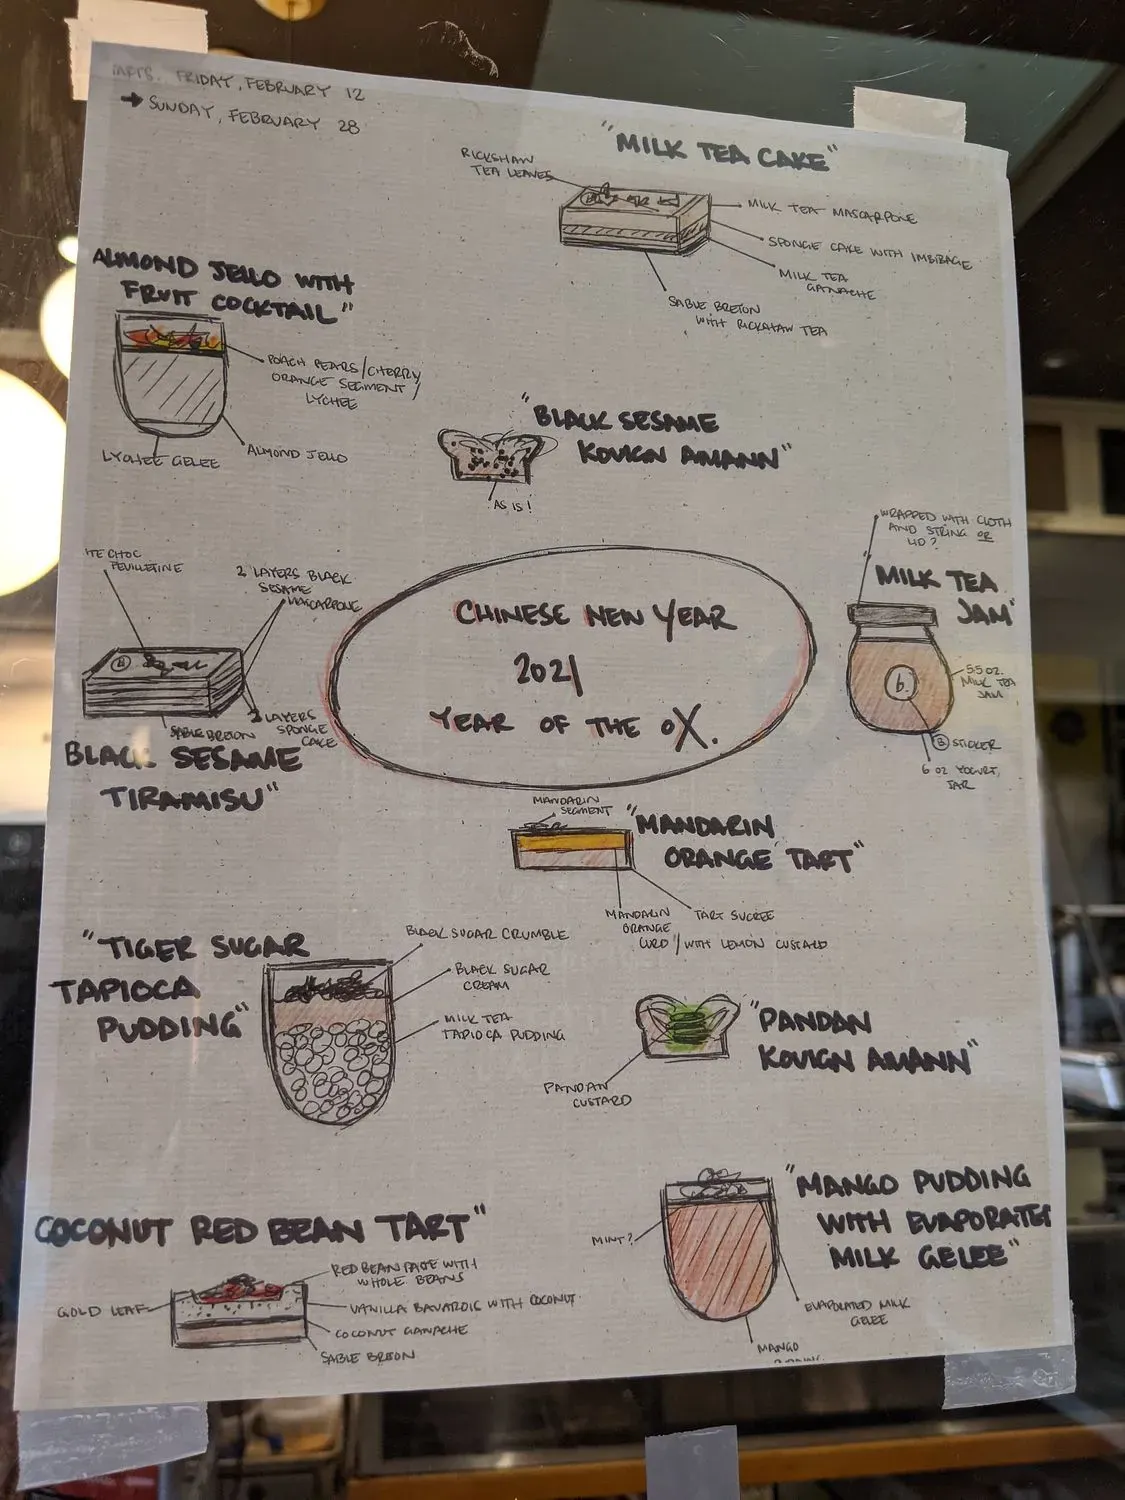 FRIDAY, FEBRUARY 12
→ SUNDAY, FEBRUARY 28
"MILK TEA CAKE"
RICKSHAW
TEA LEAVES
MILK TEA MASCARPONE
SPONGE CAKE WITH IMBIBAGE
MILK TEA
GANACHE
SABLE BRETON
WITH RICKSHAW TEA
ALMOND JELLO WITH
FRUIT COCKTAIL"
POACH PEARS/CHERRY
ORANGE SEGMENT/
LYCHEE
ALMOND JELLO
LYCHEE GELEE
"BLACK SESAME
KOUIGN AMANN"
AS IS!
WRAPPED WITH CLOTH
AND STRING OR
LID?
MILK TEA
JAM"
5.5 OZ.
MILK TEA
JAM
b.
B STICKER
6 OZ YOGURT,
JAR
ITE CHOC
FEUILLETINE
2 LAYERS BLACK
SESAME
MASCARPONE
B
SABLE BRETON
2 LAYERS
SPONGE
CAKE
BLACK SESAME
TIRAMISU"
CHINESE NEW YEAR
2021
YEAR OF THE OX.
MANDARIN
SEGMENT
"MANDARIN
ORANGE TART"
MANDARIN
ORANGE
CURD/WITH LEMON CUSTARD
TART SUCREE
"TIGER SUGAR
TAPIOCA
PUDDING"
BLACK SUGAR CRUMBLE
BLACK SUGAR
CREAM
MILK TEA
TAPIOCA PUDDING
"PANDAN
KOUIGN AMANN"
PANDAN
CUSTARD
COCONUT RED BEAN TART"
RED BEAN PASTE WITH
WHOLE BEANS
GOLD LEAF
VANILLA BAVAROIS WITH COCONUT
COCONUT GANACHE
SABLE BRETON
"MANGO PUDDING
WITH EVAPORATED
MILK GELEE"
MINT?
EVAPORATED MILK
GELEE
MANGO